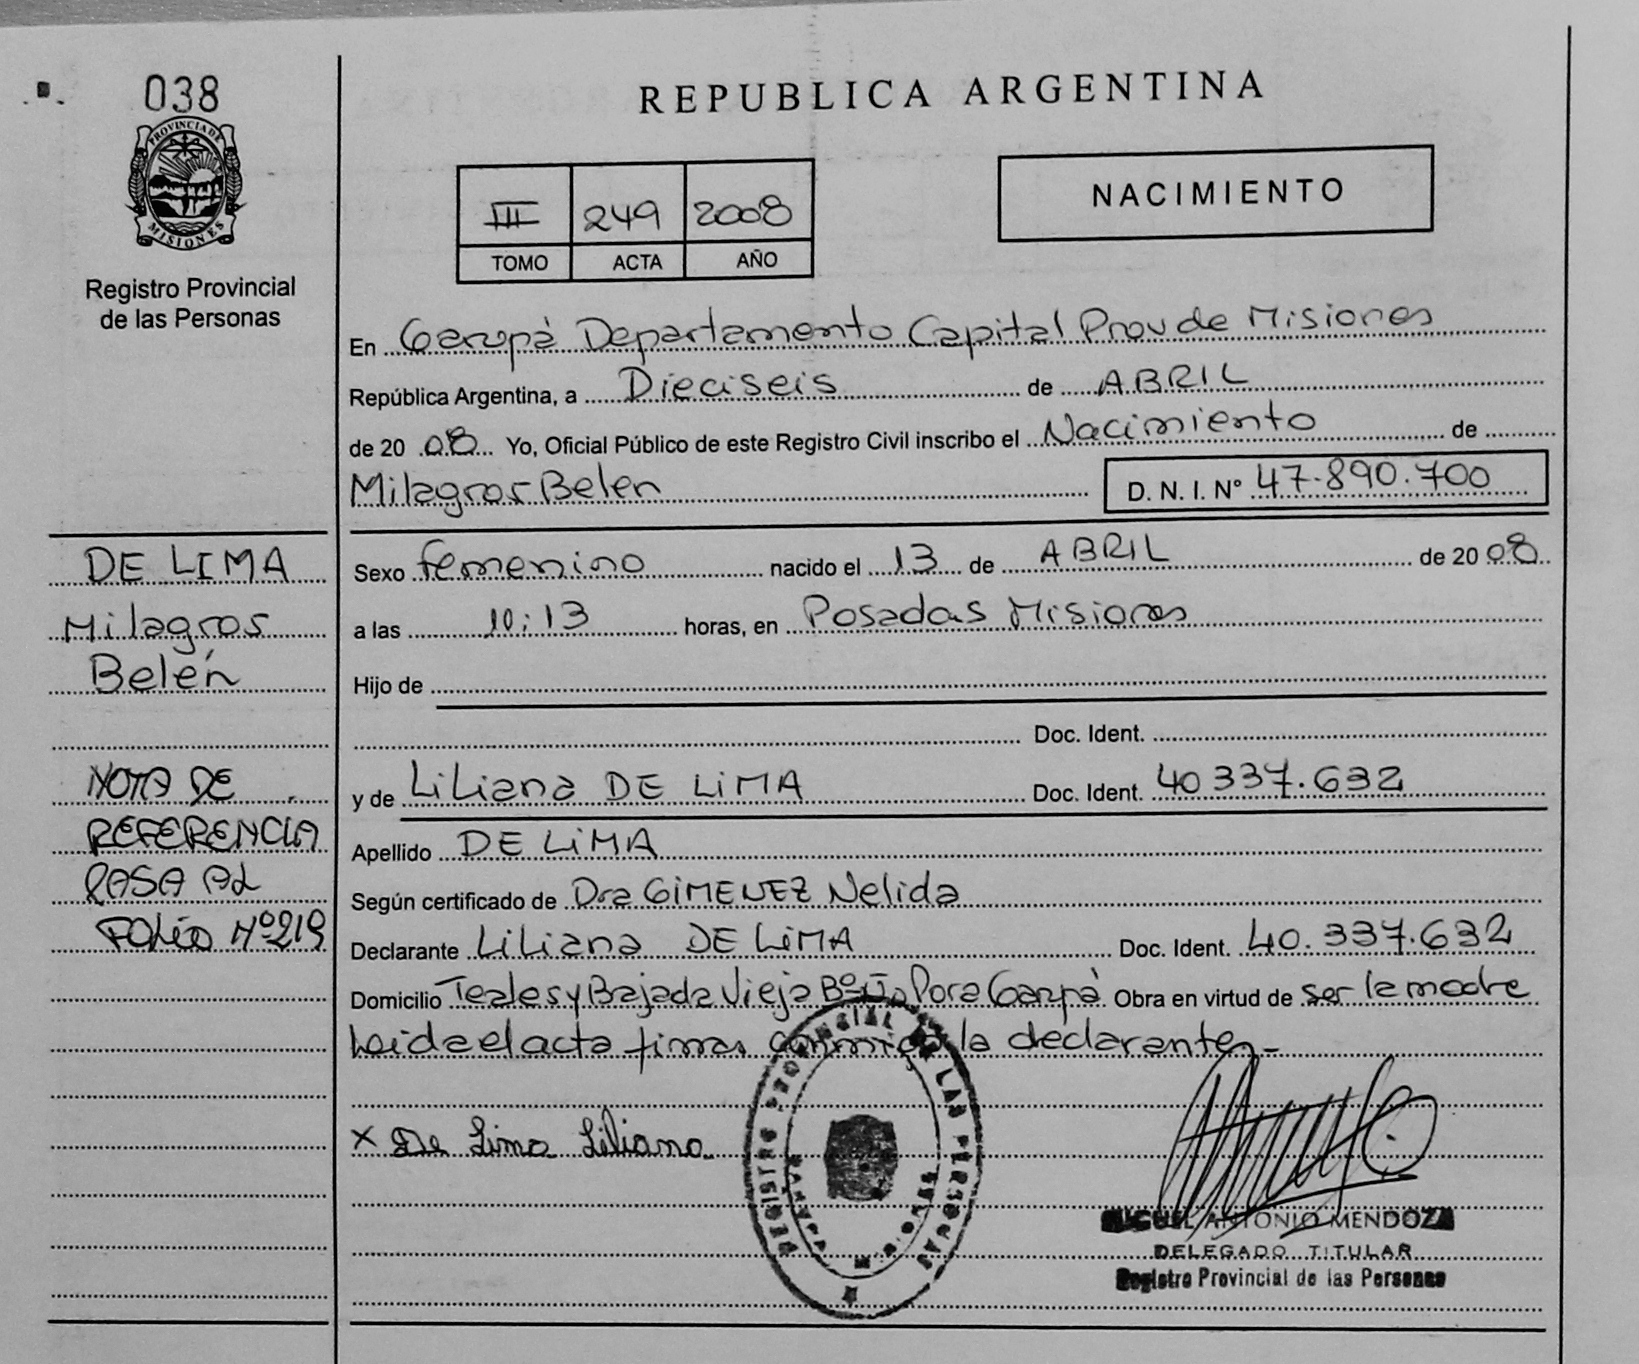 038
PROVINCIA DE
MISIONES
Registro Provincial
de las Personas
REPUBLICA ARGENTINA
NACIMIENTO
III 249 2008
TOMO ACTA AÑO
En Garupá Departamento Capital Prov de Misiones
República Argentina, a Dieciseis de ABRIL
de 20 08 Yo, Oficial Público de este Registro Civil inscribo el Nacimiento de
Milagros Belen D. N. I. Nº 47.890.700
DE LIMA
Milagros
Belén
NOTA DE
REFERENCIA
PASA AL
FOLIO Nº 219
Sexo femenino nacido el 13 de ABRIL de 20 08
a las 10:13 horas, en Posadas Misiones
Hijo de
Doc. Ident.
y de Liliana DE LiMA Doc. Ident. 40 337.632
Apellido DE LiMA
Según certificado de Dra GiMENEZ Nelida
Declarante Liliana DE LiMA Doc. Ident. 40.337.632
Domicilio Teales y Bajada Vieja Bº Ñu Pora Garupá Obra en virtud de ser la madre
Leida el acta firma conmigo la declarante-
x De Lima Liliana
REGISTRO PROVINCIAL DE LAS PERSONAS
GARUPA
MISIONES
MIGUEL ANTONIO MENDOZA
DELEGADO TITULAR
Registro Provincial de las Personas